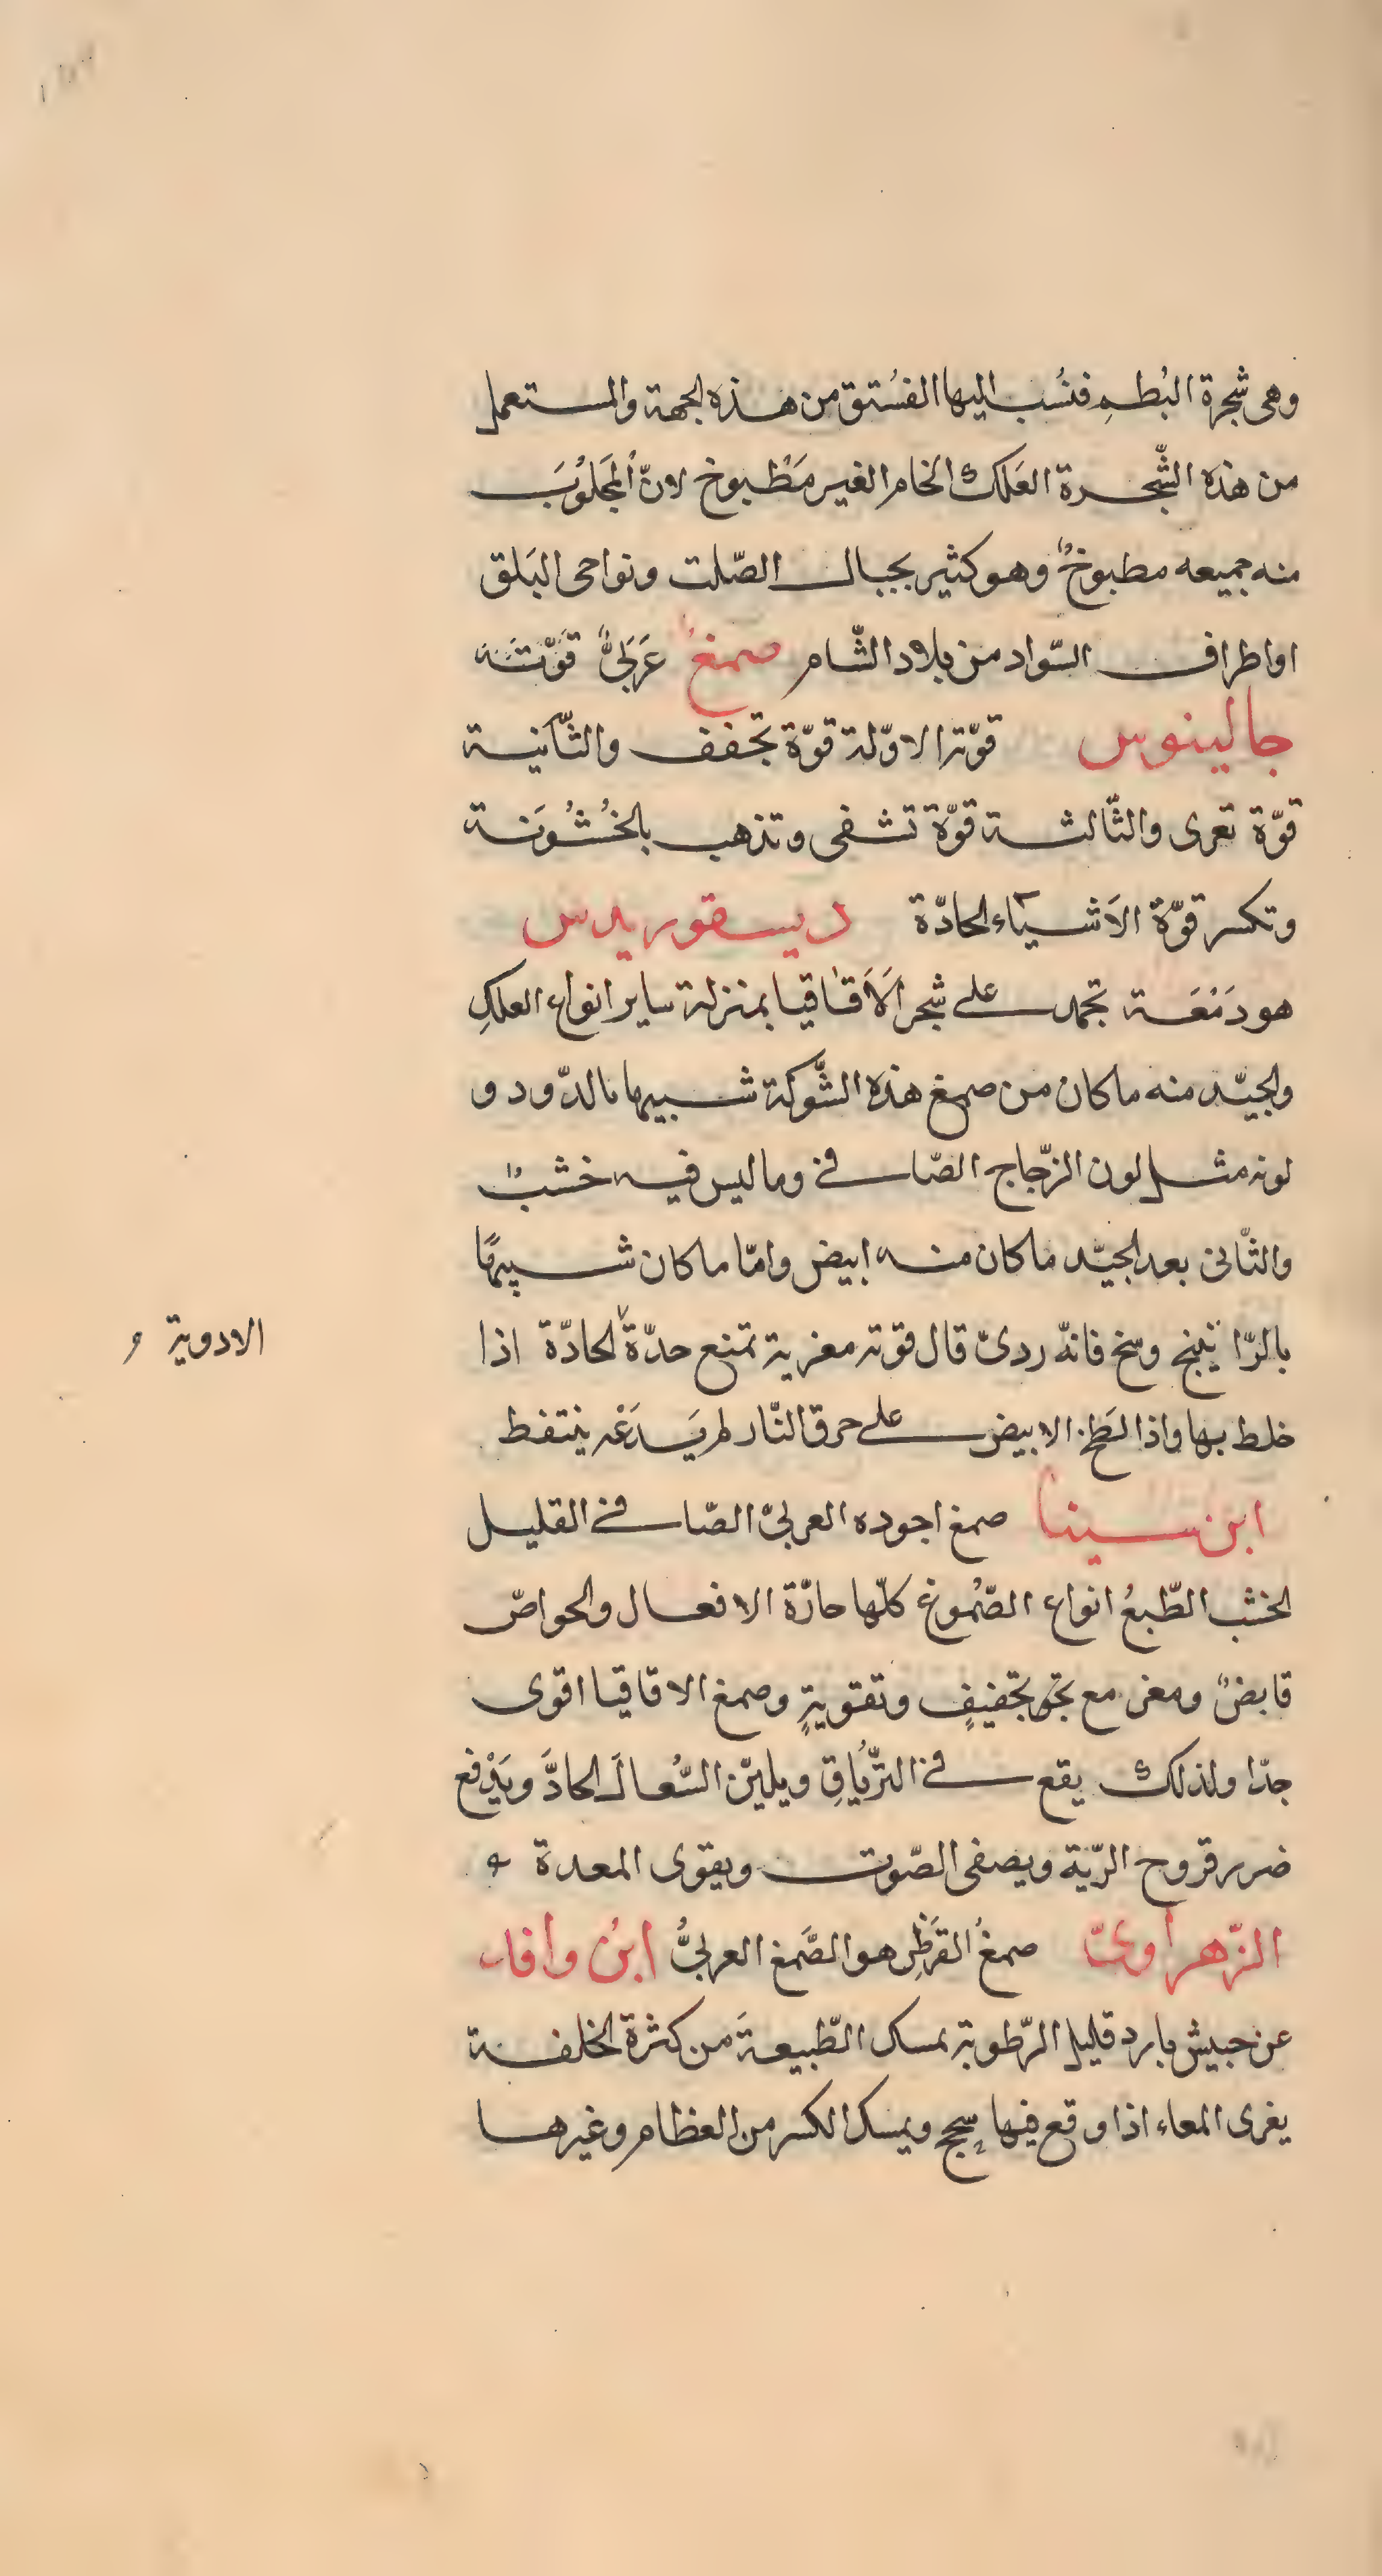 وهى شجرة البُطمِ فنُسب اليها الفسُتق من هذه الجهة والمستعمل
من هذه الشّجرة العَلك الخام الغير مَطْبوخ لانّ المَجلُوبَ
منه جميعه مطبوخٌ وهو كثير بجبال الصّلت ونواحى البَلق
او اطراف السّواد من بلاد الشّام صمغٌ عَرَبىٌّ قوّته
جالينوس قوّته الاوّلة قوّة تجفف والثّانية
قوّة تعرى والثّالثة قوّة تشفى وتذهب بالخُشُوَنة
وتكسر قوّة الاَشيآء الحادّة ديسقوريدس
هو دَمْعَة تجمد على شجر الَاَقاقيا بمنزلة ساير انواع العلكِ
والجيّد منه ما كان من صمغ هذه الشّوكة شبيها بالدّود و
لونه مثل لون الزّجاج الصّافى وما ليس فيه خشبٌ
والثّانى بعد الجيّد ما كان منه ابيض وامّا ما كان شبيهًا
بالرّاتينج وسخ فانّه ردىّ قال قوّته مغرية تمنع حدّة الحادّة اذا
الادوية
خلط بها واذا لطخ الابيض على حرق النّار لم يَدَعْه ينتفط
ابن سينا صمغ اجوده العربىّ الصّافى القليل
الخشب الطّبعُ انواع الصّمُوغ كلّها حارّة الافعال والخواصّ
قابضٌ ومغر مع تجفيفٍ وتقويةٍ وصمغ الاقاقيا اقوى
جدّا ولذلك يقع فى التّرياقِ ويليّن السُّعالَ الحادَّ ويَدْفع
ضرر قروح الرّية ويصفى الصّوت ويقوى المعدة
الزّهراوىّ صمغُ القَرَظِ هو الصَّمغ العربىُّ ابنُ وافد
عن حبيش بارد قليل الرّطوبة يمسك الطّبيعةَ من كثرة الخلفة
يغرى المعاء اذا وقع فيها سحج ويمسك الكسر من العظام وغيرها